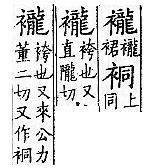 襱
襱
裙
上
同
襱
袴也又
直隴切
襱
袴也又來公力
董二切又作